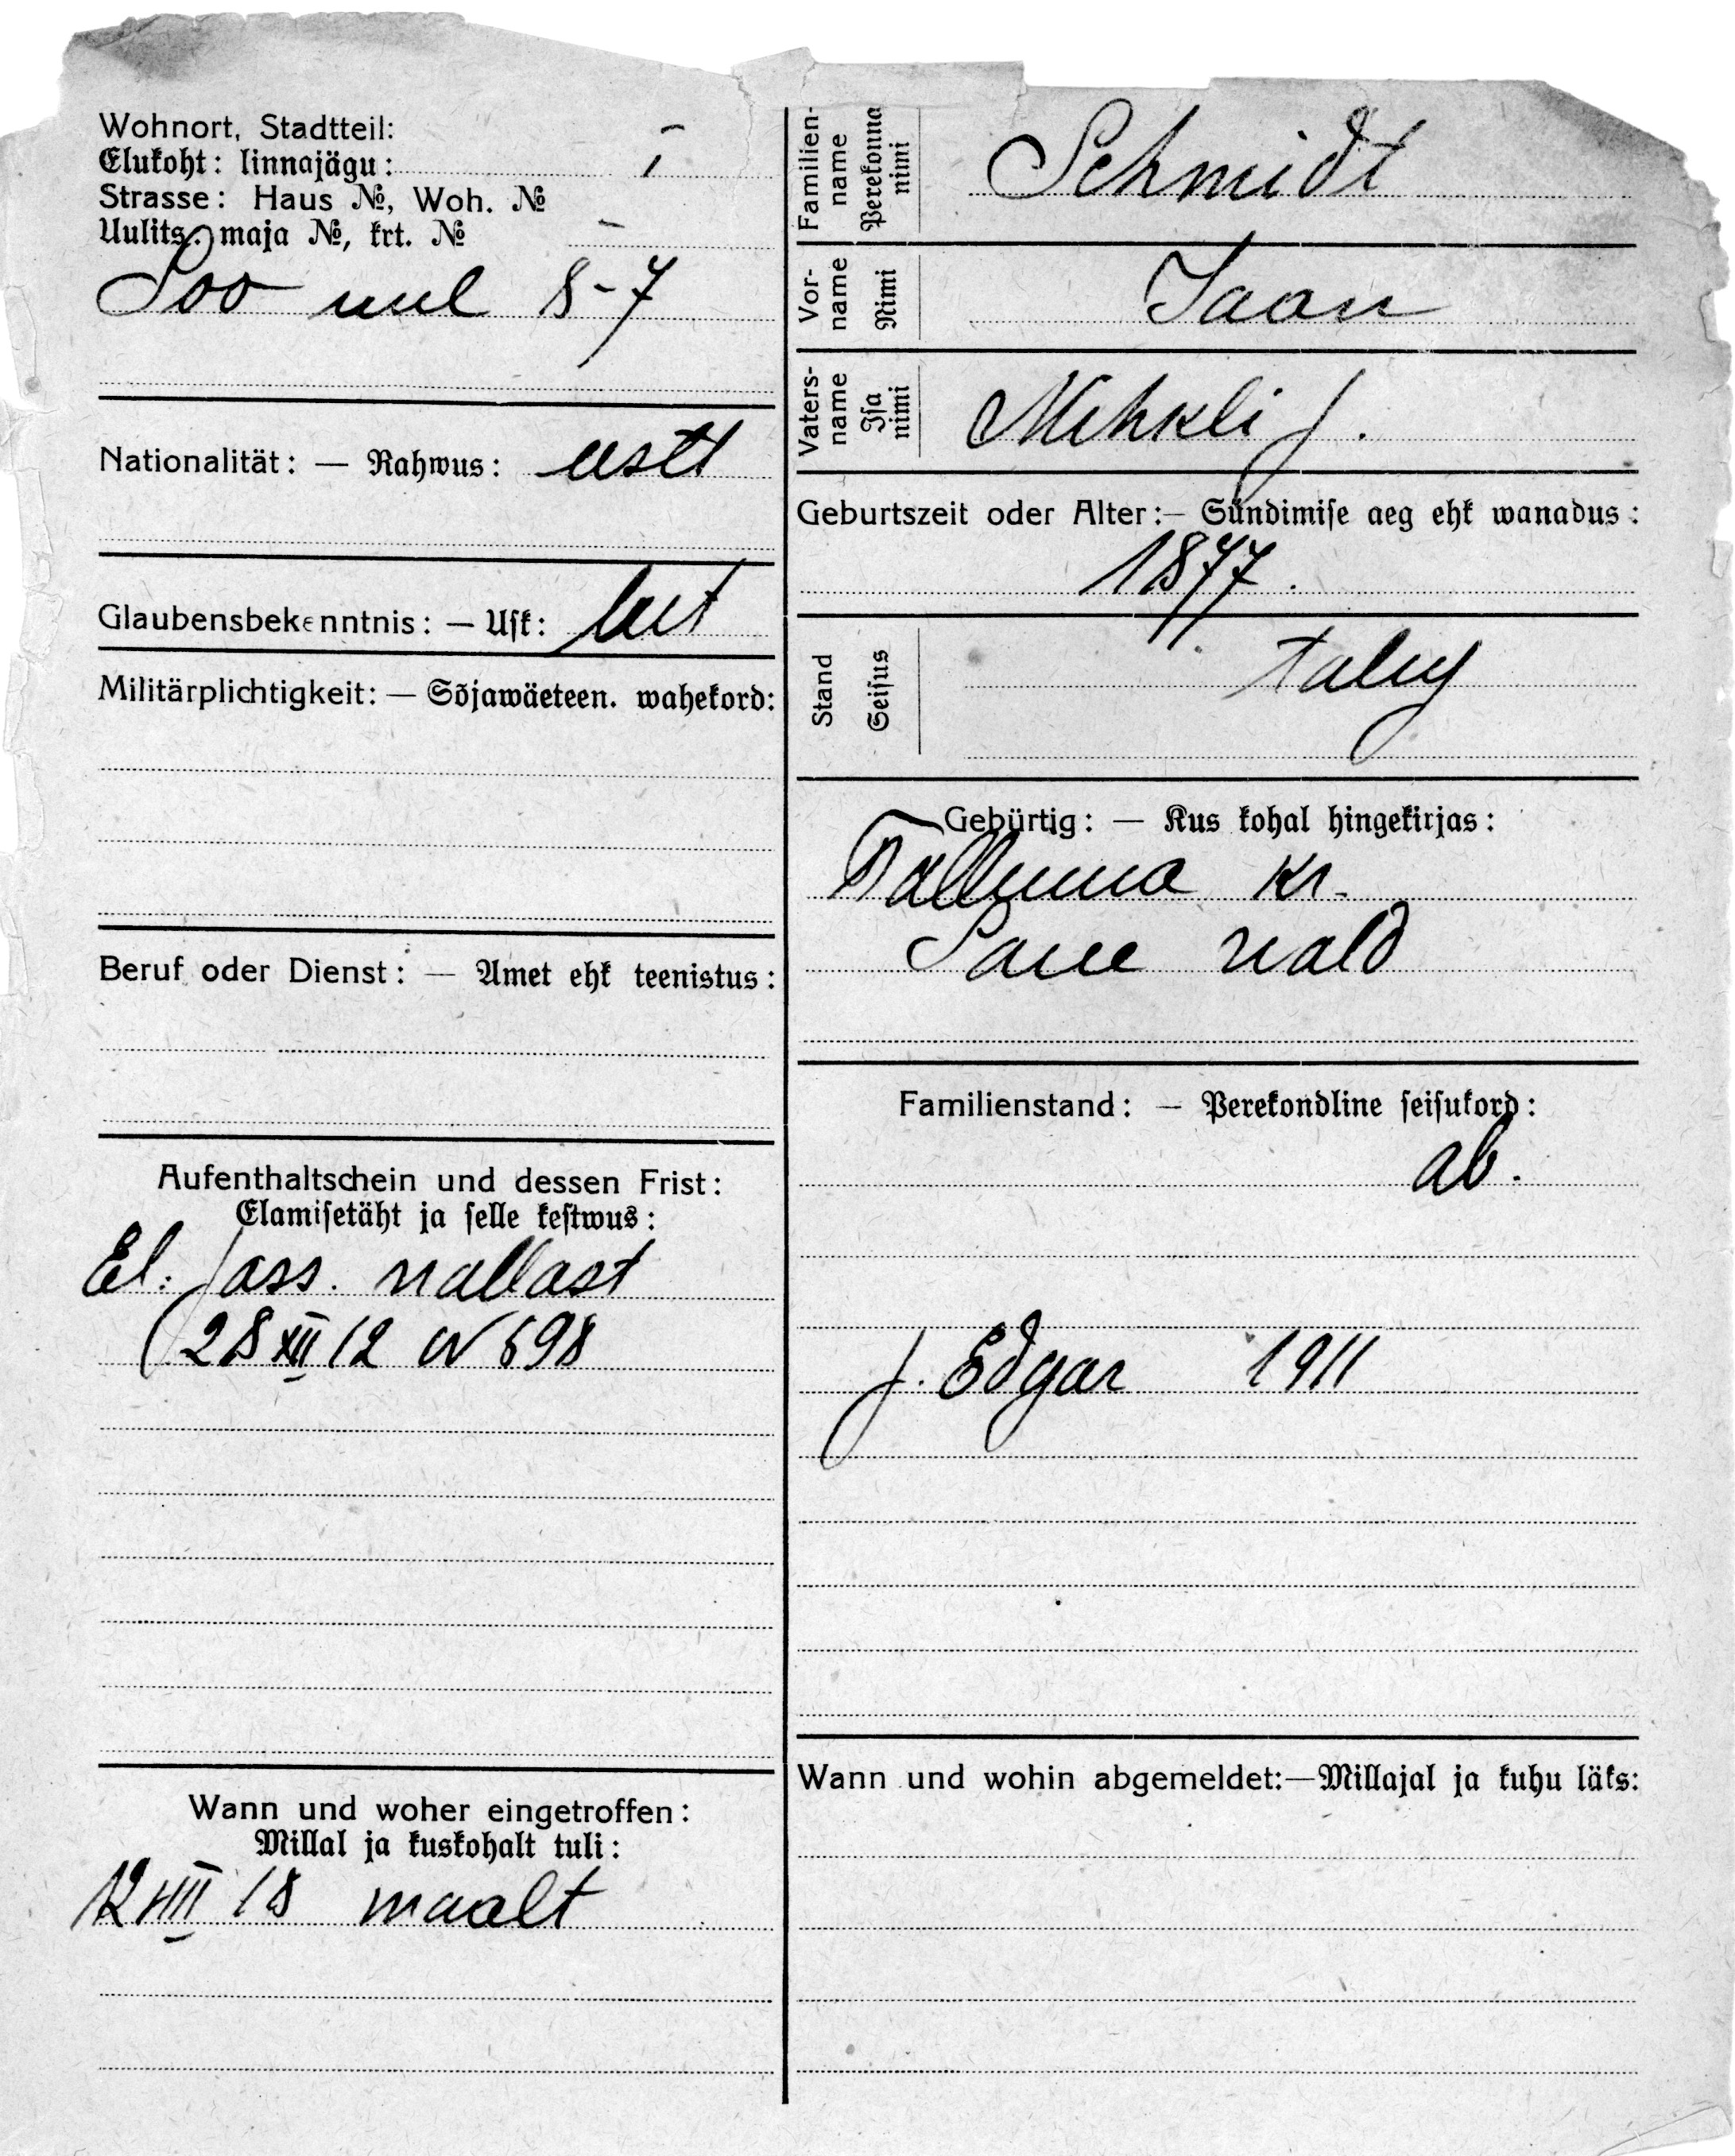 Wohnort, Stadtteil:
Elukoht: linnajägu: I
Strasse: Haus №, Woh. №
Uulits: maja №, krt. №
Soo uul 8-7
Nationalität: — Rahwus: eestl
Glaubensbekenntnis: — Usk: lut
Militärplichtigkeit: — Sõjawäeteen. wahekord:
Beruf oder Dienst: — Amet ehk teenistus:
Aufenthaltschein und dessen Frist:
Elamisetäht ja selle kestwus:
El. pass. vallast
28 XII 12 N 698
Wann und woher eingetroffen:
Millal ja kuskohalt tuli:
12 VIII 18 maalt
Familien-name Perekonna nimi Schmidt
Vor-name Nimi Jaan
Vaters-name Isa nimi Mihkli j.
Geburtszeit oder Alter:— Sündimise aeg ehk wanadus:
1877.
Stand Seisus talup
Gebürtig: — Kus kohal hingekirjas:
Tallinna kr.
Saue vald
Familienstand: — Perekondline seisukord:
ab.
p. Edgar 1911
Wann und wohin abgemeldet:—Millajal ja kuhu läks: